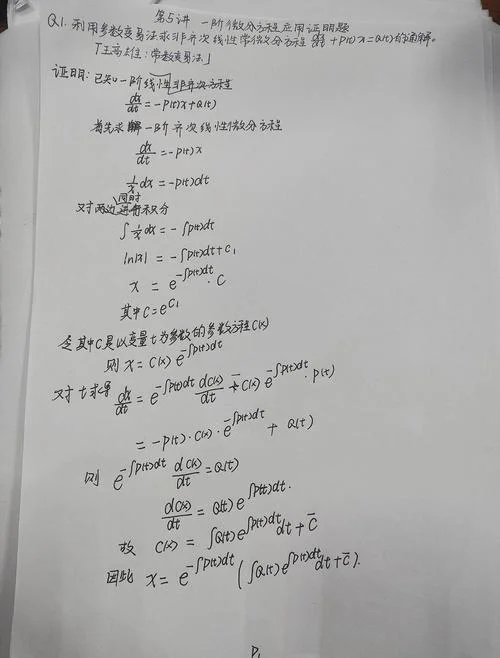 第5讲 一阶微分方程应用证明题
Q1. 利用参数变易法求非齐次线性常微分方程 dx/dt + P(t)x = Q(t)的通解。
「王高雄：常数变易法」
证明：已知一阶线性非齐次方程
dx/dt = -P(t)x + Q(t)
首先求解一阶齐次线性微分方程
dx/dt = -P(t)x
1/x dx = -P(t)dt
对两边同时进行积分
∫ 1/x dx = -∫P(t)dt
ln|x| = -∫P(t)dt + C₁
x = e^{-∫P(t)dt} · C
其中 C = e^{C₁}
令其中C是以变量t为参数的参数方程C(x)
则 x = C(x) e^{-∫P(t)dt}
对t求导 dx/dt = e^{-∫P(t)dt} dC(x)/dt - C(x) e^{-∫P(t)dt} · P(t)
= -P(t) · C(x) · e^{-∫P(t)dt} + Q(t)
则 e^{-∫P(t)dt} dC(x)/dt = Q(t)
dC(x)/dt = Q(t) e^{∫P(t)dt}.
故 C(x) = ∫Q(t) e^{∫P(t)dt} dt + C̄
因此 x = e^{-∫P(t)dt} (∫Q(t) e^{∫P(t)dt} dt + C̄).
P₁